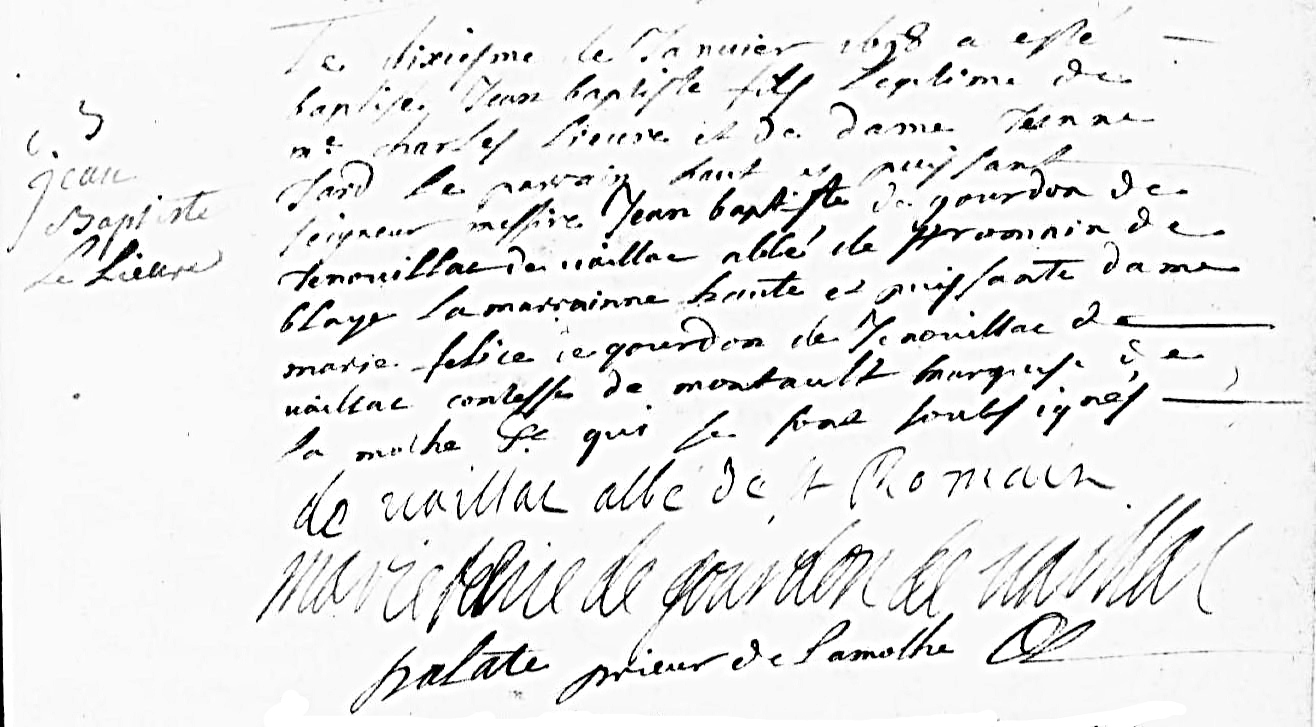 Le dixiesme de Janvier 1698 a esté
baptisé Jean baptiste fils legitime de
mr charles lieure et de dame Jeanne
Jard le parrain haut et puissant
seigneur messire Jean baptiste de gourdon de
Jenouillac de vaillac abbé de St romain de
blaye la marrainne haute et puissante dame
marie felice de gourdon de Jenouillac de
vaillac contesse de montault marquise de
la mothe &c qui se sont soubsignés
3
jean
Baptiste
Le Lieure
de vaillac abbe de st Romain
marie felice de gourdon de vaillac
prieur de Lamothe